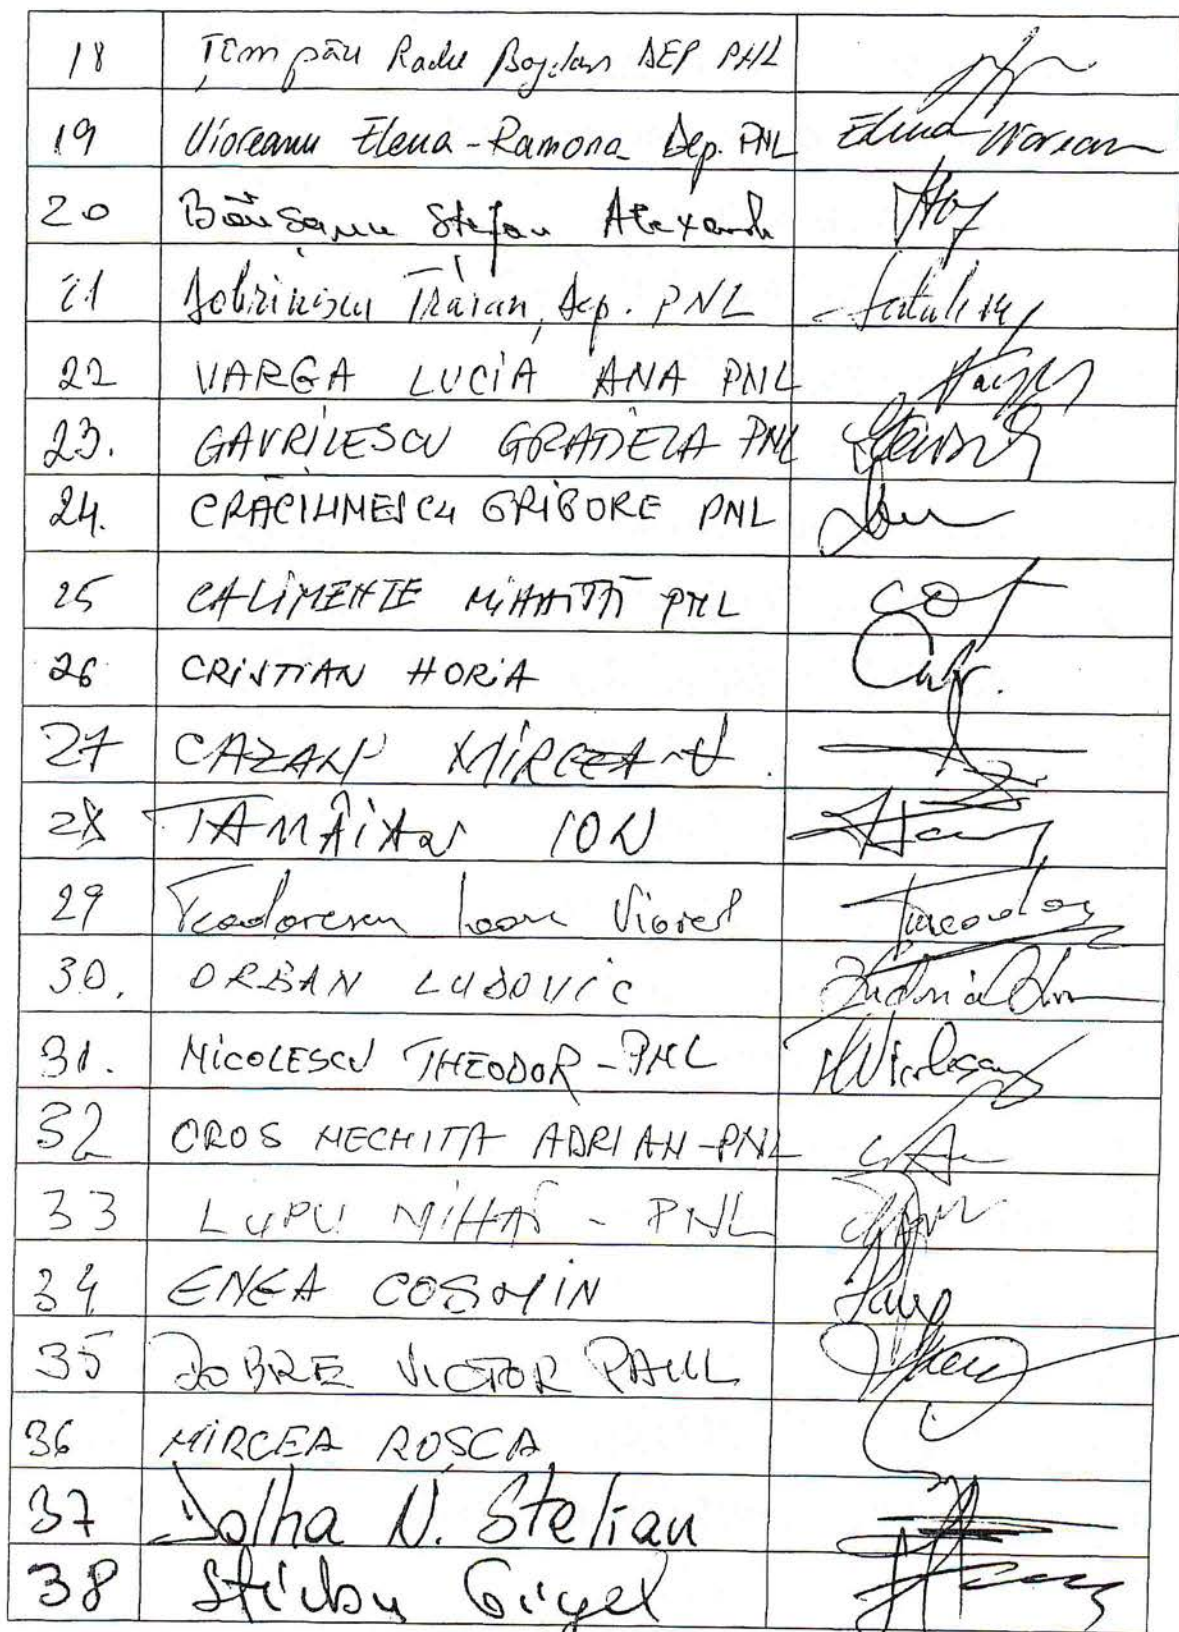 18 Țîmpău Radu Bogdan DEP PNL
19 Vioreanu Elena-Ramona Dep. PNL Elena Vioreanu
20 Băișanu Ștefan Alexandru
21 Dobrinescu Traian, Dep. PNL
22 VARGA LUCIA ANA PNL Varga
23. GAVRILESCU GRAȚIELA PNL
24. CRĂCIUNESCU GRIGORE PNL
25 CALIMENTE MIHĂIȚĂ PNL
26 CRISTIAN HORIA
27 CAZAN MIRCEA-V.
28 TAMÂIAN ION
29 Teodorescu Ioan Viorel
30. ORBAN LUDOVIC Ludovic Orban
31. NICOLESCU THEODOR-PNL TNicolescu
32 OROS NECHITA ADRIAN-PNL
33 LUPU MIHAI - PNL
34 ENEA COSMIN
35 DOBRE VICTOR PAUL
36 MIRCEA ROȘCA
37 Dolha N. Stelian
38 Știrbu Gigel